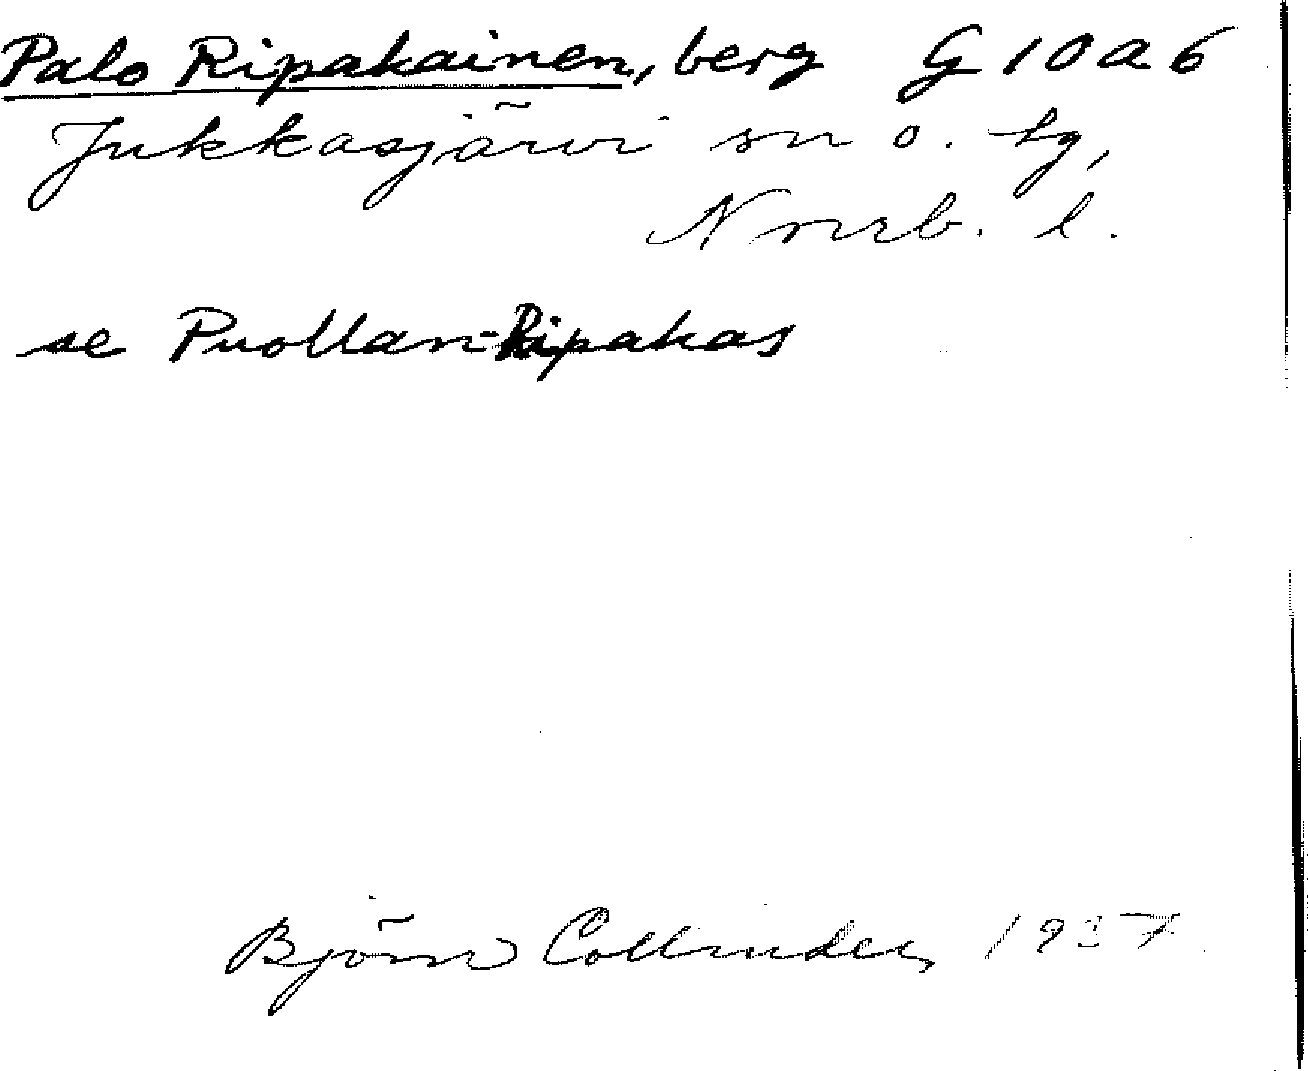 Palo Ripakainen, berg G 10 a 6
Jukkasjärvi sn o. tg,
Norrb. l.
se Puollan-Ripakas
Björn Collinder 1937